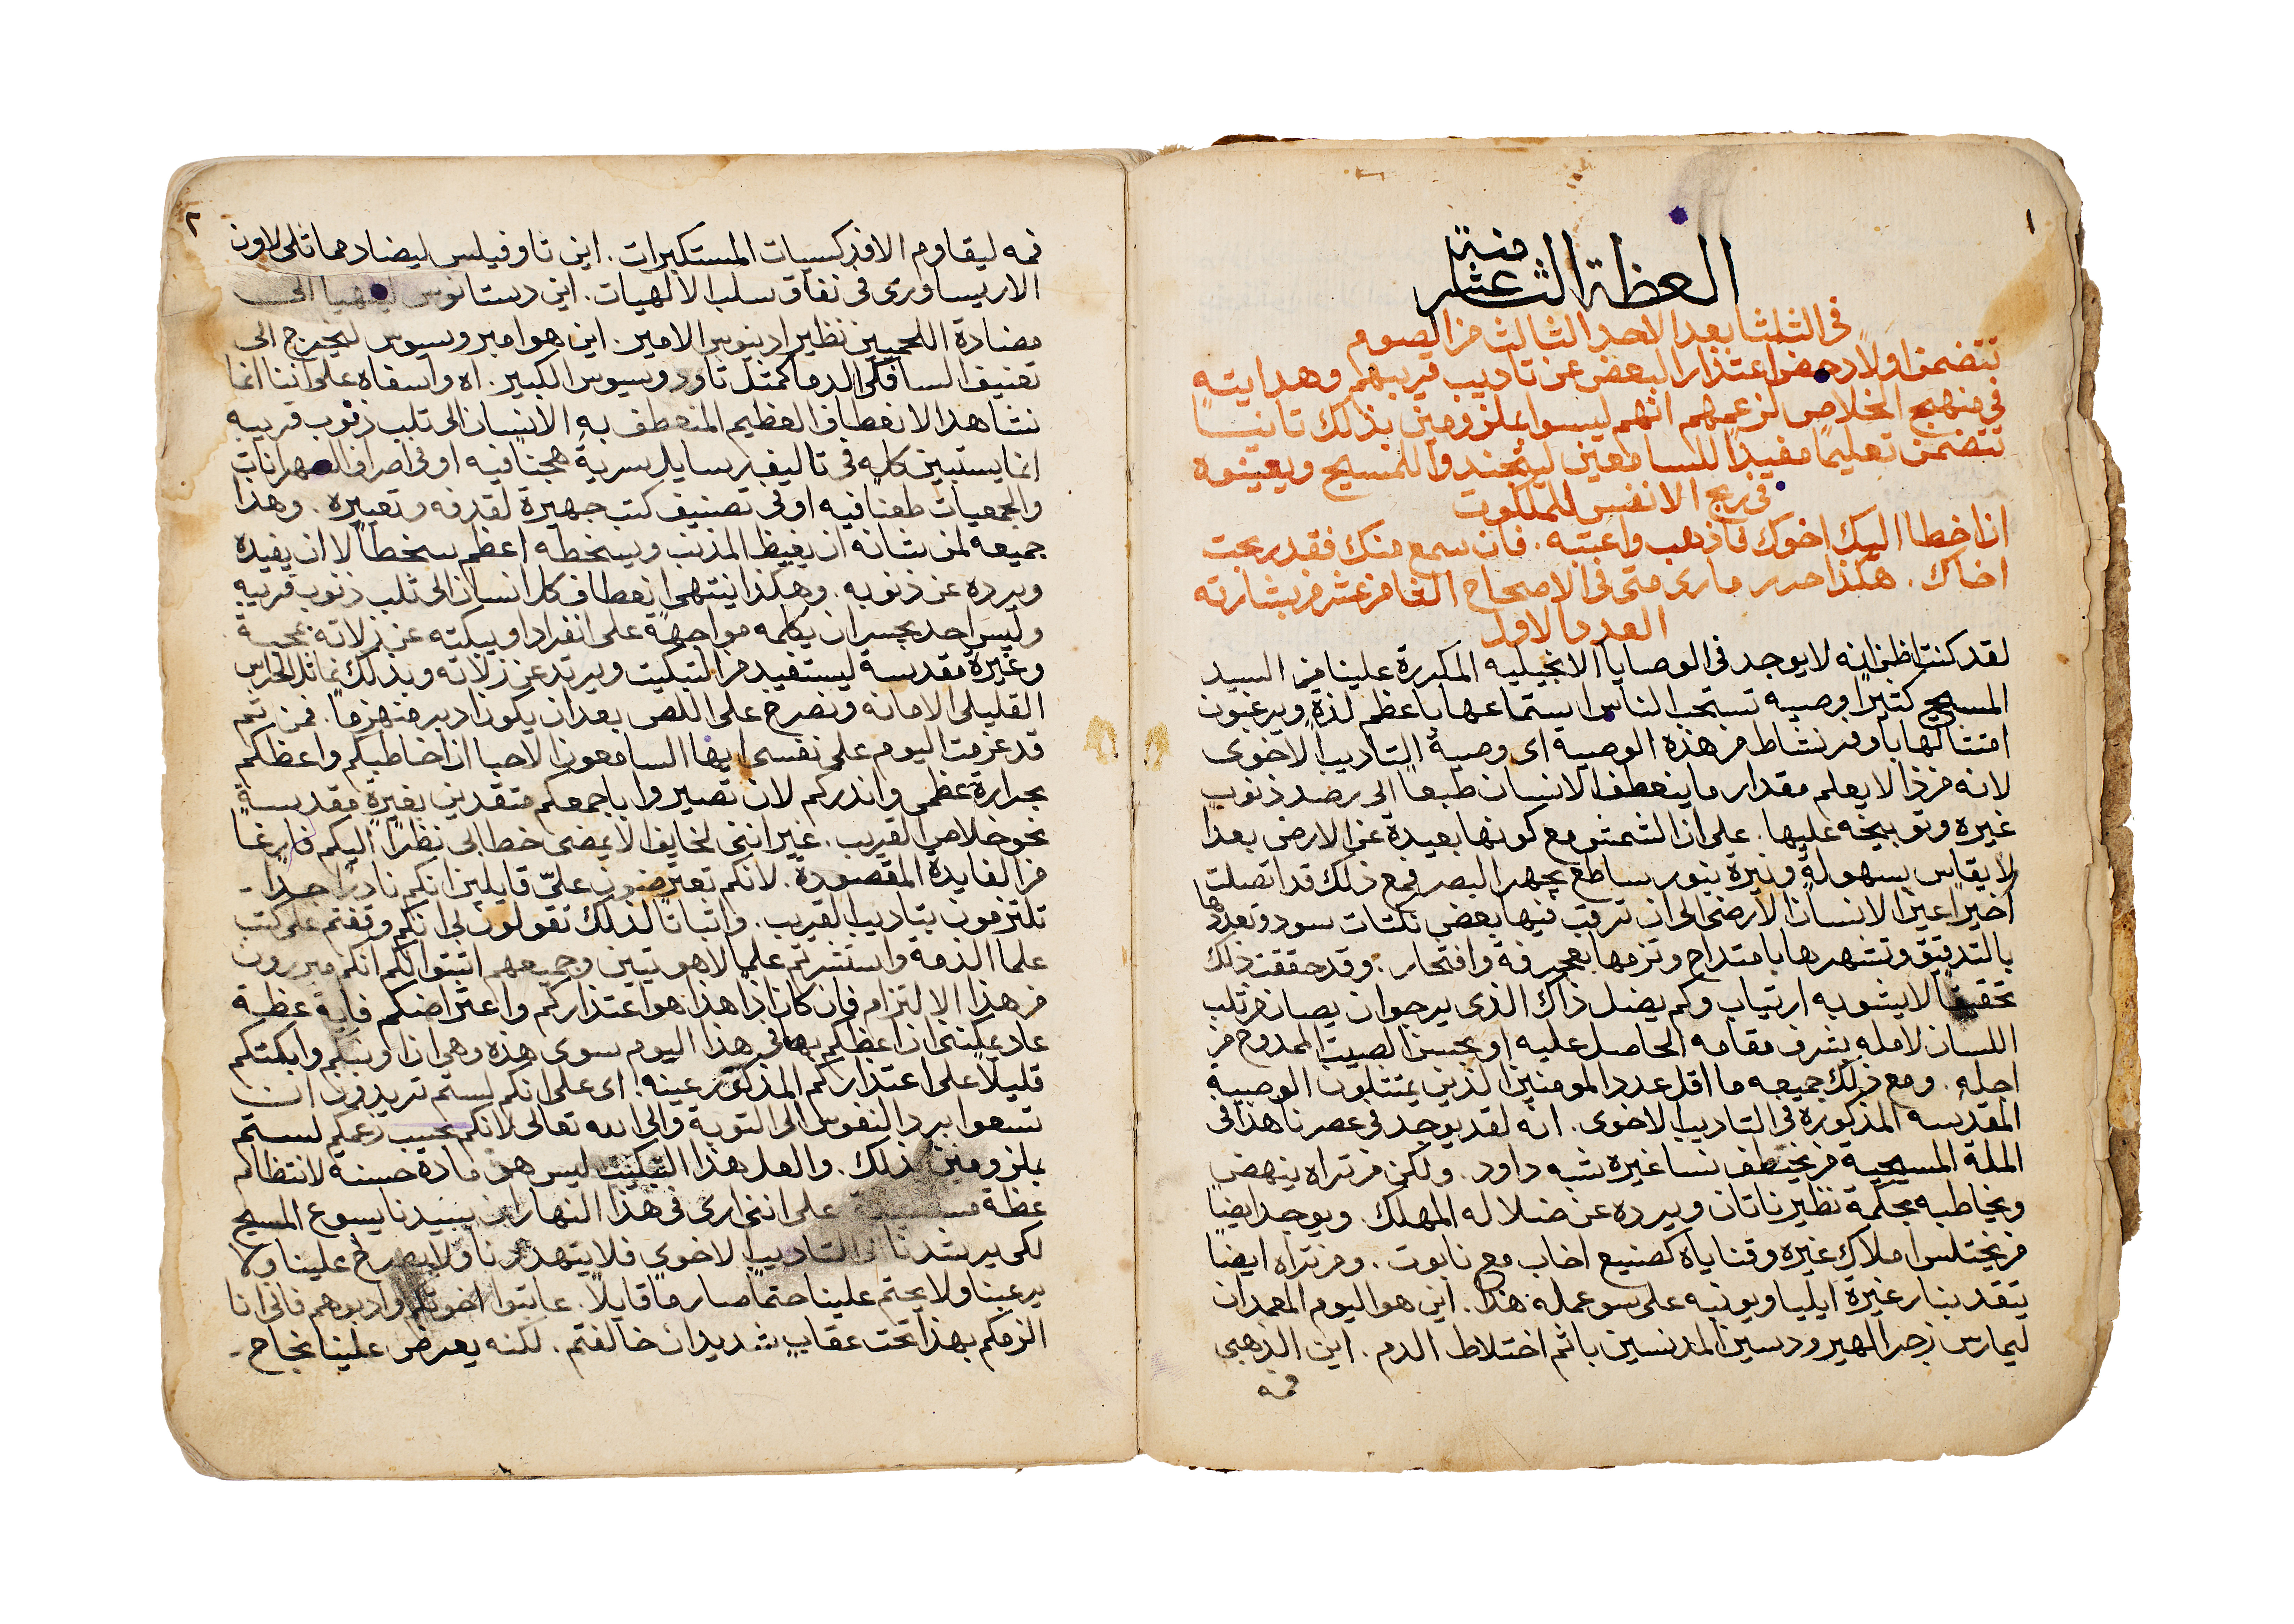 ١
العظة الثامنة عشر
فى الثلثا بعد الاحد الثالث من الصوم
تتضمن اولاً دحض اعتذار البعض عن تاديب قريبهم وهدايته
فى منهج الخلاص لزعمهم انهم ليسوا بملزومين بذلك ثانيًا
تتضمن تعليمًا مفيدًا للسامعين ليجندوا للمسيح ويعينوه
فى ربح الانفس للملكوت
ان اخطا اليك اخوك فاذهب واعتبه. فان سمع منك فقد ربحت
اخاك. هكذا حرر مارى متى فى الاصحاح الثامن عشر من بشارته
العدد الاول
لقد كنت اظن انه لا يوجد فى الوصايا الانجيليه المكررة علينا من السيد
المسيح كثيرًا وصيه تستحب الناس استماعها باعظم لذةٍ ويرغبون
امتثالها باوفر نشاط من هذه الوصية اى وصية التاديب الاخوى
لانه من ذا لا يعلم مقدار ما ينعطف الانسان طبعًا الى رصد ذنوب
غيره وتوبيخه عليها. على ان الشمس مع كونها بعيدة عن الارض بعدا
لا يقاس بسهولة ونيرة بنور ساطع يجهر البصر فمع ذلك قد اتصلت
اخيرًا عين الانسان الارضى الى ان ترقب فيها بعض نكتات سود وتعددها
بالتدقيق وتشهرها بامتداح وتزمها بعجرفة وافتخار. وقد حققت ذلك
تحقيقًا لا يشوبه ارتياب وكم يضل ذاك الذى يرجو ان يصان من ثلب
اللسان لامله بشرف مقامه الحاصل عليه او بحسن الصيت الممدوح من
اجله. ومع ذلك جميعه ما اقل عدد المومنين الذين يمتثلون الوصية
المقدسه المذكورة فى التاديب الاخوى. انه لقد يوجد فى عصرنا هذا فى
الملة المسيحية من يختطف نسا غيره شبه داود. ولكن من تراه ينهض
ويخاطبه بحكمة نظير ناتان ويرده عن ضلاله المهلك. ويوجد ايضًا
من يختلس املاك غيره وقناياه كصنيع اخاب مع نابوت. ومن تراه ايضًا
يتقد بنار غيرة ايليا ويونبه على سو عمله هذا. اين هو اليوم المعمدان
ليمارس زجر الهيرودسيين المدنسين باثم اختلاط الدم. اين الذهبى
فمه
٢
فمه ليقاوم الافدكسيات المستكبرات. اين ثاوفيلس ليضادد مماثلى لاون
الاريساورى فى نفاق سلب الالهيات. اين دستانوس ليهيا الى
مضادة اللحميين نظير ادينوس الامير. اين هو امبروسيوس ليخرج الى
تعنيف السافكى الدما كمثل ثاودوسيوس الكبير. اه واسفاه على اننا انما
نشاهد الانعطاف العظيم المنعطف به الانسان الى ثلب ذنوب قريبه
انما يستبين كله فى تاليف رسايل سريةٍ هجنًا فيه او فى اصراف السهرانات
والجمعيات طعنًا فيه او فى تصنيف كتب جهيرة لقدفه وتعييره. وهذا
جميعه لمن شانه ان يغيظ المذنب ويسخطه اعظم سخطًا لا ان يفيده
ويرده عن ذنوبه. وهكذا ينتهى انعطاف كل انسان الى ثلب ذنوب قريبه
وليس احد يجسر ان يكلمه مواجهةً على انفراد او يبكته عن زلاته بمحبة
وغيرة مقدسة ليستفيد من التبكيت ويرتد عن زلاته وبذلك نماثل الحراس
القليلى الامانه ونصرخ على اللص بعد ان يكون ادبر منهزمًا. فمن ثم
قد عزمت اليوم على نفسى ايها السامعون الاحبا ان اخاطبكم واعظكم
بحرارة عظمى وانذركم لان تصيروا باجمعكم متقدين بغيرةٍ مقدسةٍ
نحو خلاص القريب. غير اننى لخايف الا يمضى خطابى نظرًا اليكم فارغًا
من الفايدة المقصودة. لانكم تعترضون علىّ قايلين انكم نادرًا جدًا -
تلتزمون بتاديب القريب. واثباتًا لذلك تقولون لى انكم وقفتم على كتب
علما الذمة واستشرتم علما لاهوتيين وجميعهم اثبتوا لكم انكم مبررون
من هذا الالتزام فان كان اذًا هذا هو اعتذاركم واعتراضكم فاية عظة
عاد يمكننى ان اعظكم بها فى هذا اليوم سوى هذه وهى ان اوبنكم وابكمتكم
قليلاً على اعتذاركم المذكور عينه. اى على انكم لستم تريدون ان
تسعوا برد النفوس الى التوبة والى الله تعالى لانكم بحسب زعمكم لستم
بملزومين بذلك. والعل هذا التبكيت ليس هو مادة حسنة لانتظام
عظة على اننى ارى فى هذا النهار ان سيدنا يسوع المسيح
لكى يرشدنا الى التاديب الاخوى فلا يتهددنا ولا يصرخ علينا ولا
يرعبنا ولا يحتم علينا حتمًا صارمًا قايلاً. عاتبوا اخوتكم وادبوهم فانى انا
الزمكم بهذا تحت عقابٍ شديد ان خالفتم. لكنه يعرض علينا نجاح -